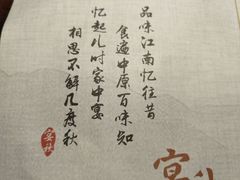 品味江南忆往昔
食遍中原百味知
忆起儿时家中宴
相思不解几度秋
宴秋
宴